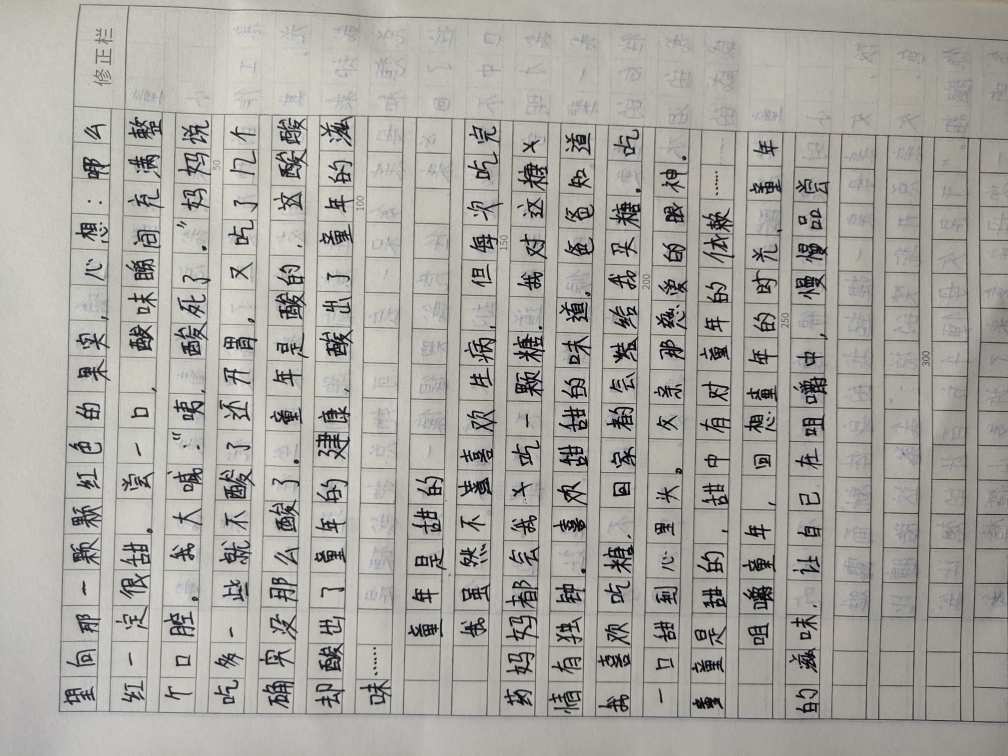 修正栏
里向那一颗颗红色的果实,心想:哪么
红一定很甜。尝一口,酸味瞬间充满整
个口腔。我大喊:“咦,酸死了。”妈妈说
50
吃多一些就不酸了还开胃。又吃了几个
确实没那么酸了。童年是酸的,这酸酸
却酸出了童年的健康,酸出了童年的滋
100
味……
童年是甜的
我虽然不喜欢生病,但每次吃完
150
药妈妈都会我又吃一颗糖。我对这糖又
情有独钟。喜欢甜甜的味道。爸爸知道
我喜欢吃糖,回家都会黏给我买糖。吃
200
一口甜到心里头。父亲那慈爱的眼神。
童童是甜的,甜中有对童年的依赖……
咀嚼童年,回想童年的时光,童年
250
的滋味,让自己在咀嚼中,慢慢品尝
300